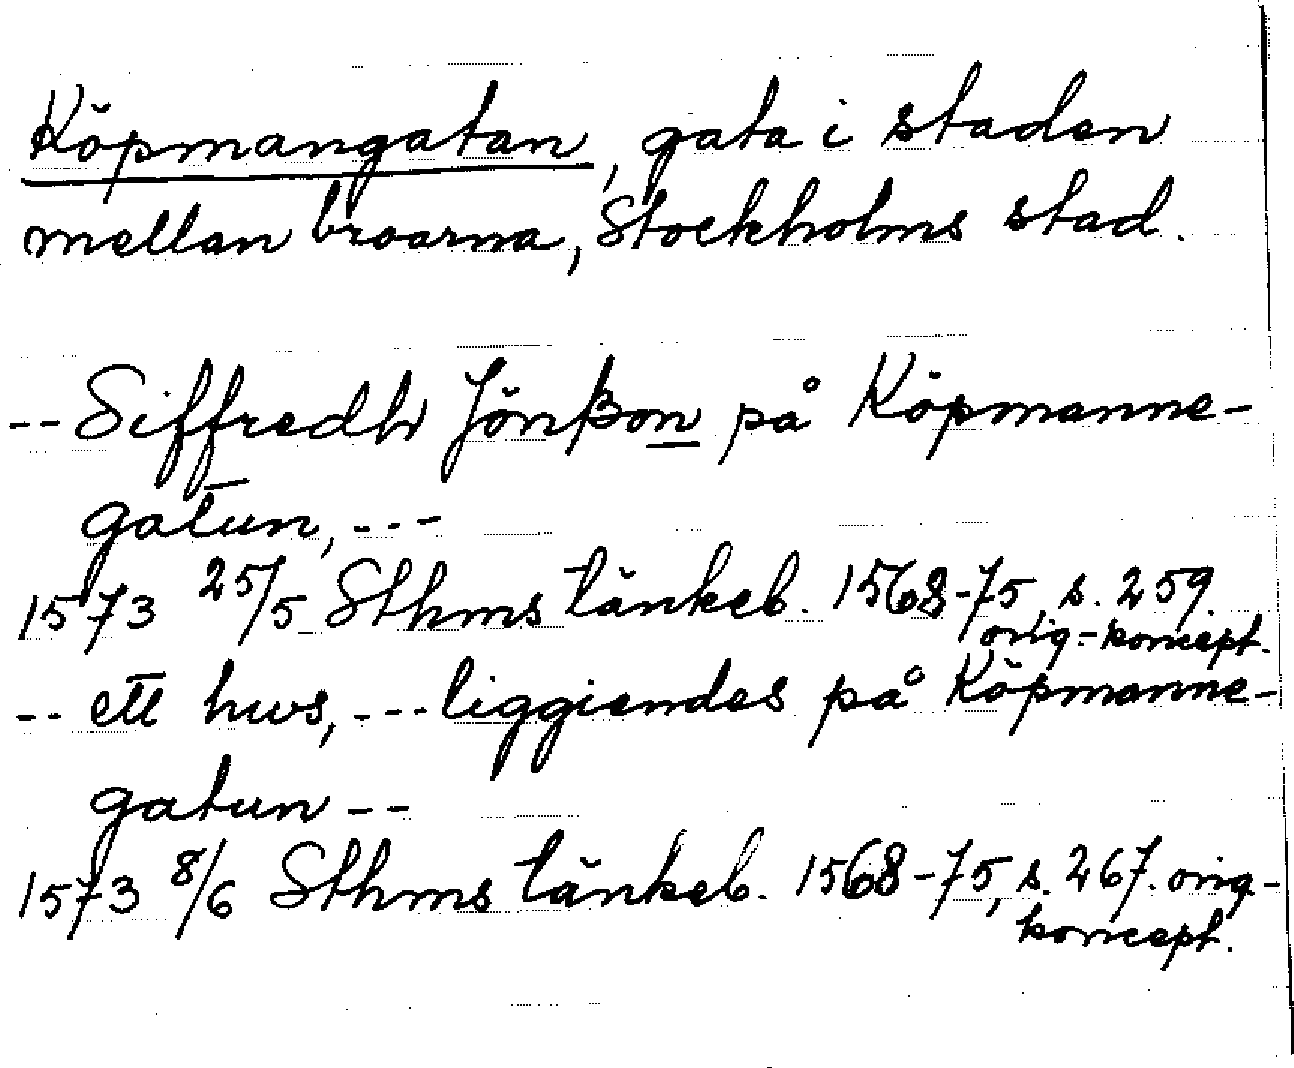 Köpmangatan, gata i staden
mellan broarna, Stockholms stad.
-- Siffredh Jönßon på Köpmanne-
gatun, ---
1573 25/5 Sthms tänkeb. 1568-75, s. 259.
orig.-koncept.
-- ett hws, --- liggiendes på Köpmanne-
gatun --
1573 8/6 Sthms tänkeb. 1568-75, s. 267. orig-
koncept.